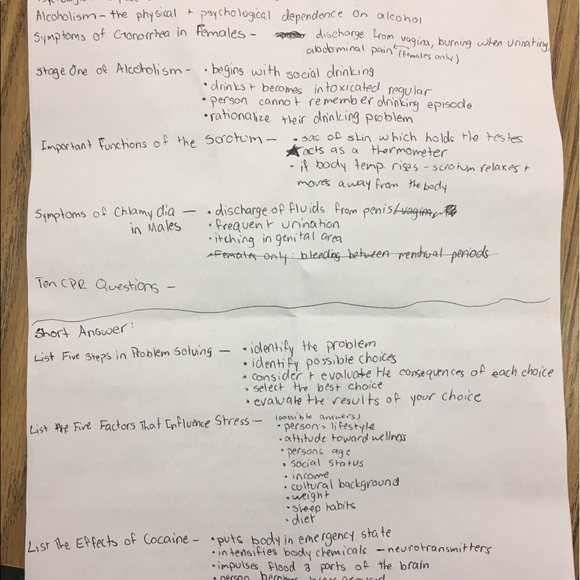 Alcoholism - the physical + psychological dependence on alcohol
Symptoms of Gonorrhea in Females - discharge from vagina, burning when urinating,
abdominal pain (females only)
Stage One of Alcoholism - • begins with social drinking
• drinks + becomes intoxicated regular
• person cannot remember drinking episode
• rationalize their drinking problem
Important Functions of the Scrotum - • sac of skin which holds the testes
★ acts as a thermometer
• if body temp. rises - scrotum relaxes +
moves away from the body
Symptoms of Chlamydia - • discharge of fluids from penis/vagina
in Males • frequent urination
• itching in genital area
• Females only: bleeding between mentrual periods
Ten CPR Questions -
Short Answer:
List Five Steps in Problem Solving - • identify the problem
• identify possible choices
• consider + evaluate the consequences of each choice
• select the best choice
• evaluate the results of your choice
List Five Factors That Influence Stress - (possible answers)
• person's lifestyle
• attitude toward wellness
• persons age
• social status
• income
• cultural background
• weight
• sleep habits
• diet
List The Effects of Cocaine - • puts body in emergency state
• intensifies body chemicals - neurotransmitters
• impulses flood 3 parts of the brain
• person